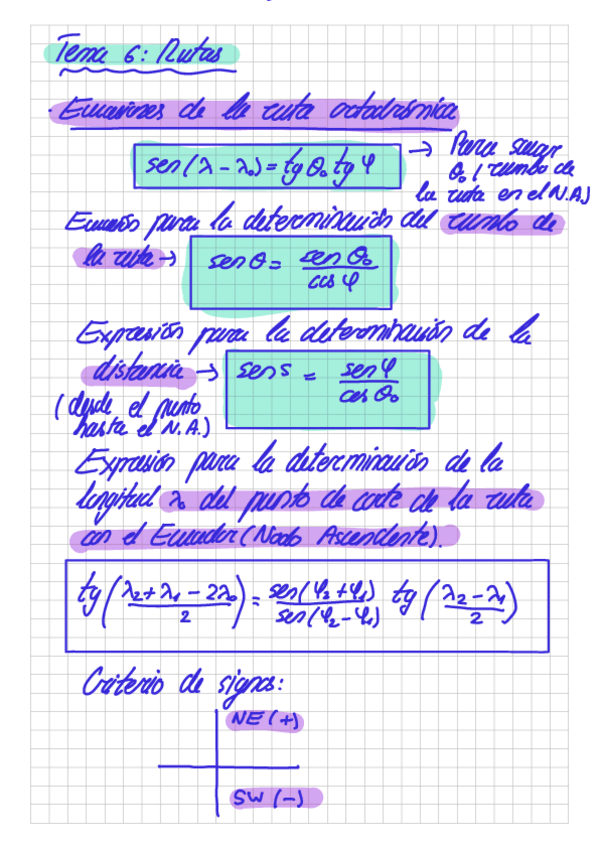 Tema 6: Rutas
· Ecuaciones de la ruta ortodrómica
sen(λ - λ₀) = tg θ₀ tg φ → Para sacar
θ₀ (rumbo de
la ruta en el N.A)
Ecuación para la determinación del rumbo de
la ruta → sen θ = sen θ₀ / cos φ
Expresión para la determinación de la
distancia → sen s = sen φ / cos θ₀
(desde el punto
hasta el N.A.)
Expresión para la determinación de la
longitud λ₀ del punto de corte de la ruta
con el Ecuador (Nodo Ascendente).
tg((λ₂ + λ₁ - 2λ₀) / 2) = sen(φ₂ + φ₁) / sen(φ₂ - φ₁) tg((λ₂ - λ₁) / 2)
Criterio de signos:
NE (+)
SW (-)